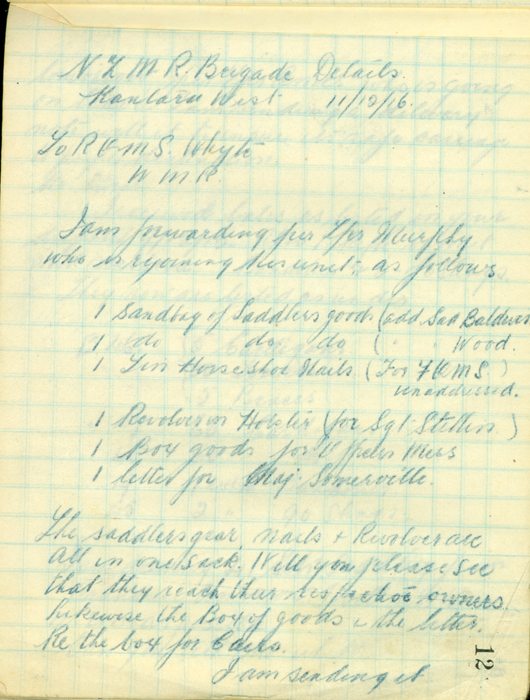 N Z M R. Brigade Details.
Kantara West 11/12/16.
To R Q M S. Whyte
W M R.
I am forwarding per Tpr Murphy
who is rejoining his unit, as follows.
1 Sandbag of Saddlers goods (add Sad Balderson
1 do do do ( " " Wood.
1 Tin Horse Shoe Nails (For F Q M S.)
unaddressed.
1 Revolver in Holster (for Sgt )
1 Box goods for Officers Mess
1 letter for Maj. Somerville.
The saddlers gear, nails & Revolver are
all in one sack. Will you please see
that they reach their respective owners.
Likewise the Box of goods & the letter.
Re the box for Cairo.
I am sending it
12